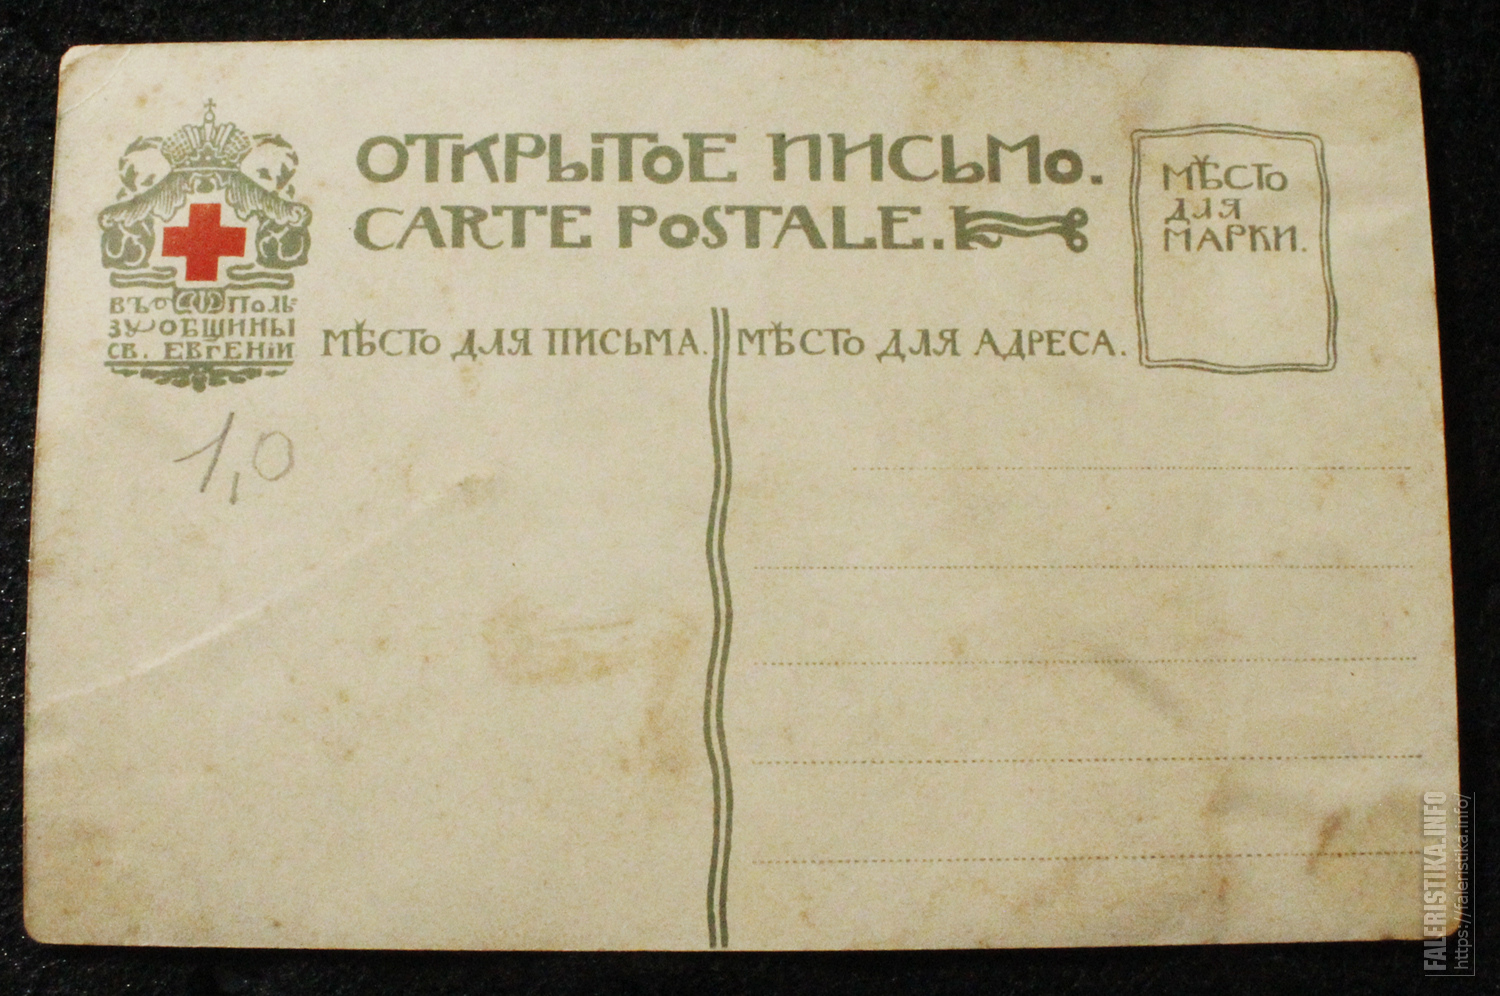 ОТКРЫТОЕ ПИСЬМО.
CARTE POSTALE.
МѢСТО
ДЛЯ
МАРКИ.
ВЪ ПОЛЬ-
ЗУ ОБЩИНЫ
СВ. ЕВГЕНІИ
МѢСТО ДЛЯ ПИСЬМА.
МѢСТО ДЛЯ АДРЕСА.
1,0
FALERISTIKA.INFO
https://faleristika.info/